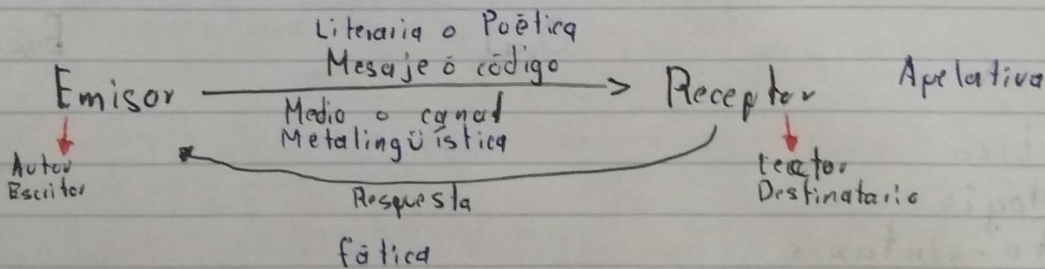 Literaria o Poética
Mesaje ó código
Emisor
Receptor
Apelativa
Medio o canal
Metalingüística
Autor
Escritor
Lector
Destinatario
Respuesta
fática